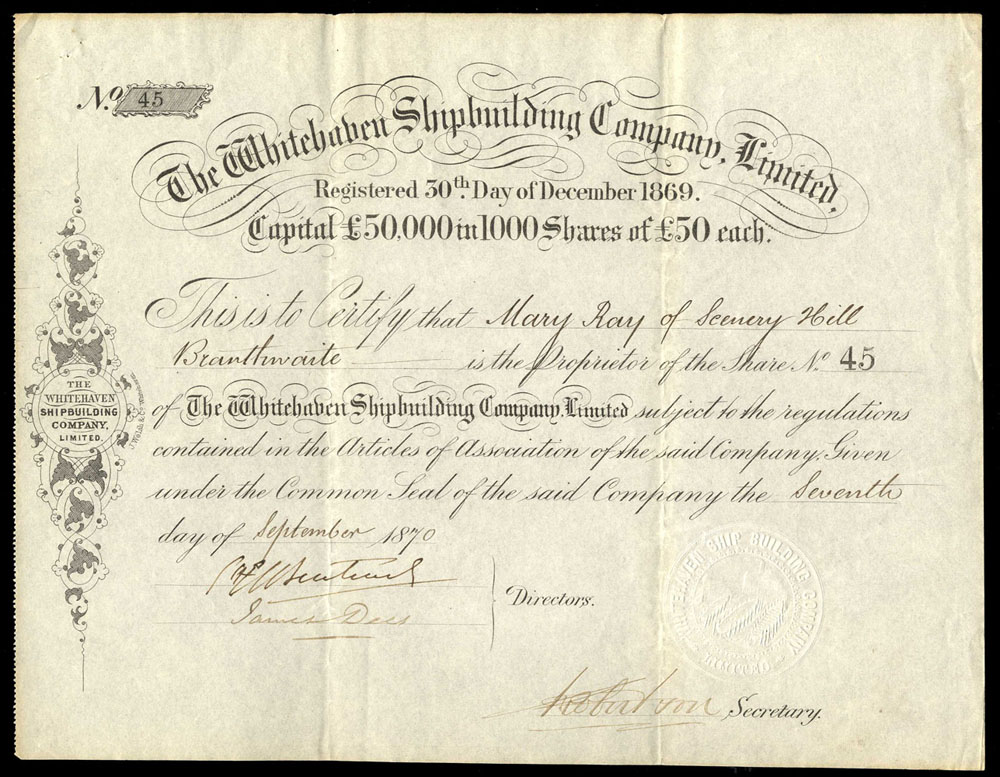 No. 45
The Whitehaven Shipbuilding Company, Limited.
Registered 30th. Day of December 1869.
Capital £50,000 in 1000 Shares of £50 each.
This is to Certify that Mary Ray of Scenery Hill
Branthwaite is the Proprietor of the Share No. 45
of The Whitehaven Shipbuilding Company, Limited subject to the regulations
contained in the Articles of Association of the said Company. Given
under the Common Seal of the said Company the Seventh
day of September 1870
James Dees
Directors.
Secretary.
THE
WHITEHAVEN
SHIPBUILDING
COMPANY,
LIMITED.
WHITEHAVEN SHIP BUILDING COMPANY
LIMITED